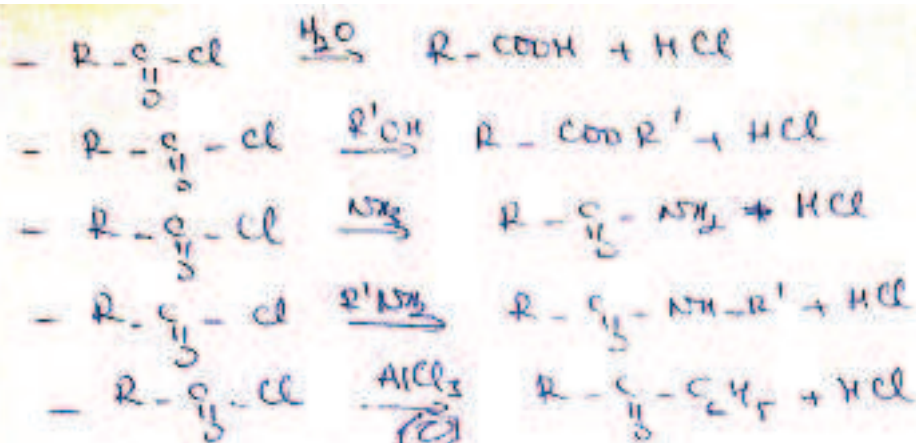 - R-C(=O)-Cl →(H₂O) R-COOH + HCl
- R-C(=O)-Cl →(R'OH) R-COOR' + HCl
- R-C(=O)-Cl →(NH₃) R-C(=O)-NH₂ + HCl
- R-C(=O)-Cl →(R'NH₂) R-C(=O)-NH-R' + HCl
- R-C(=O)-Cl →(AlCl₃) R-C(=O)-C₆H₅ + HCl